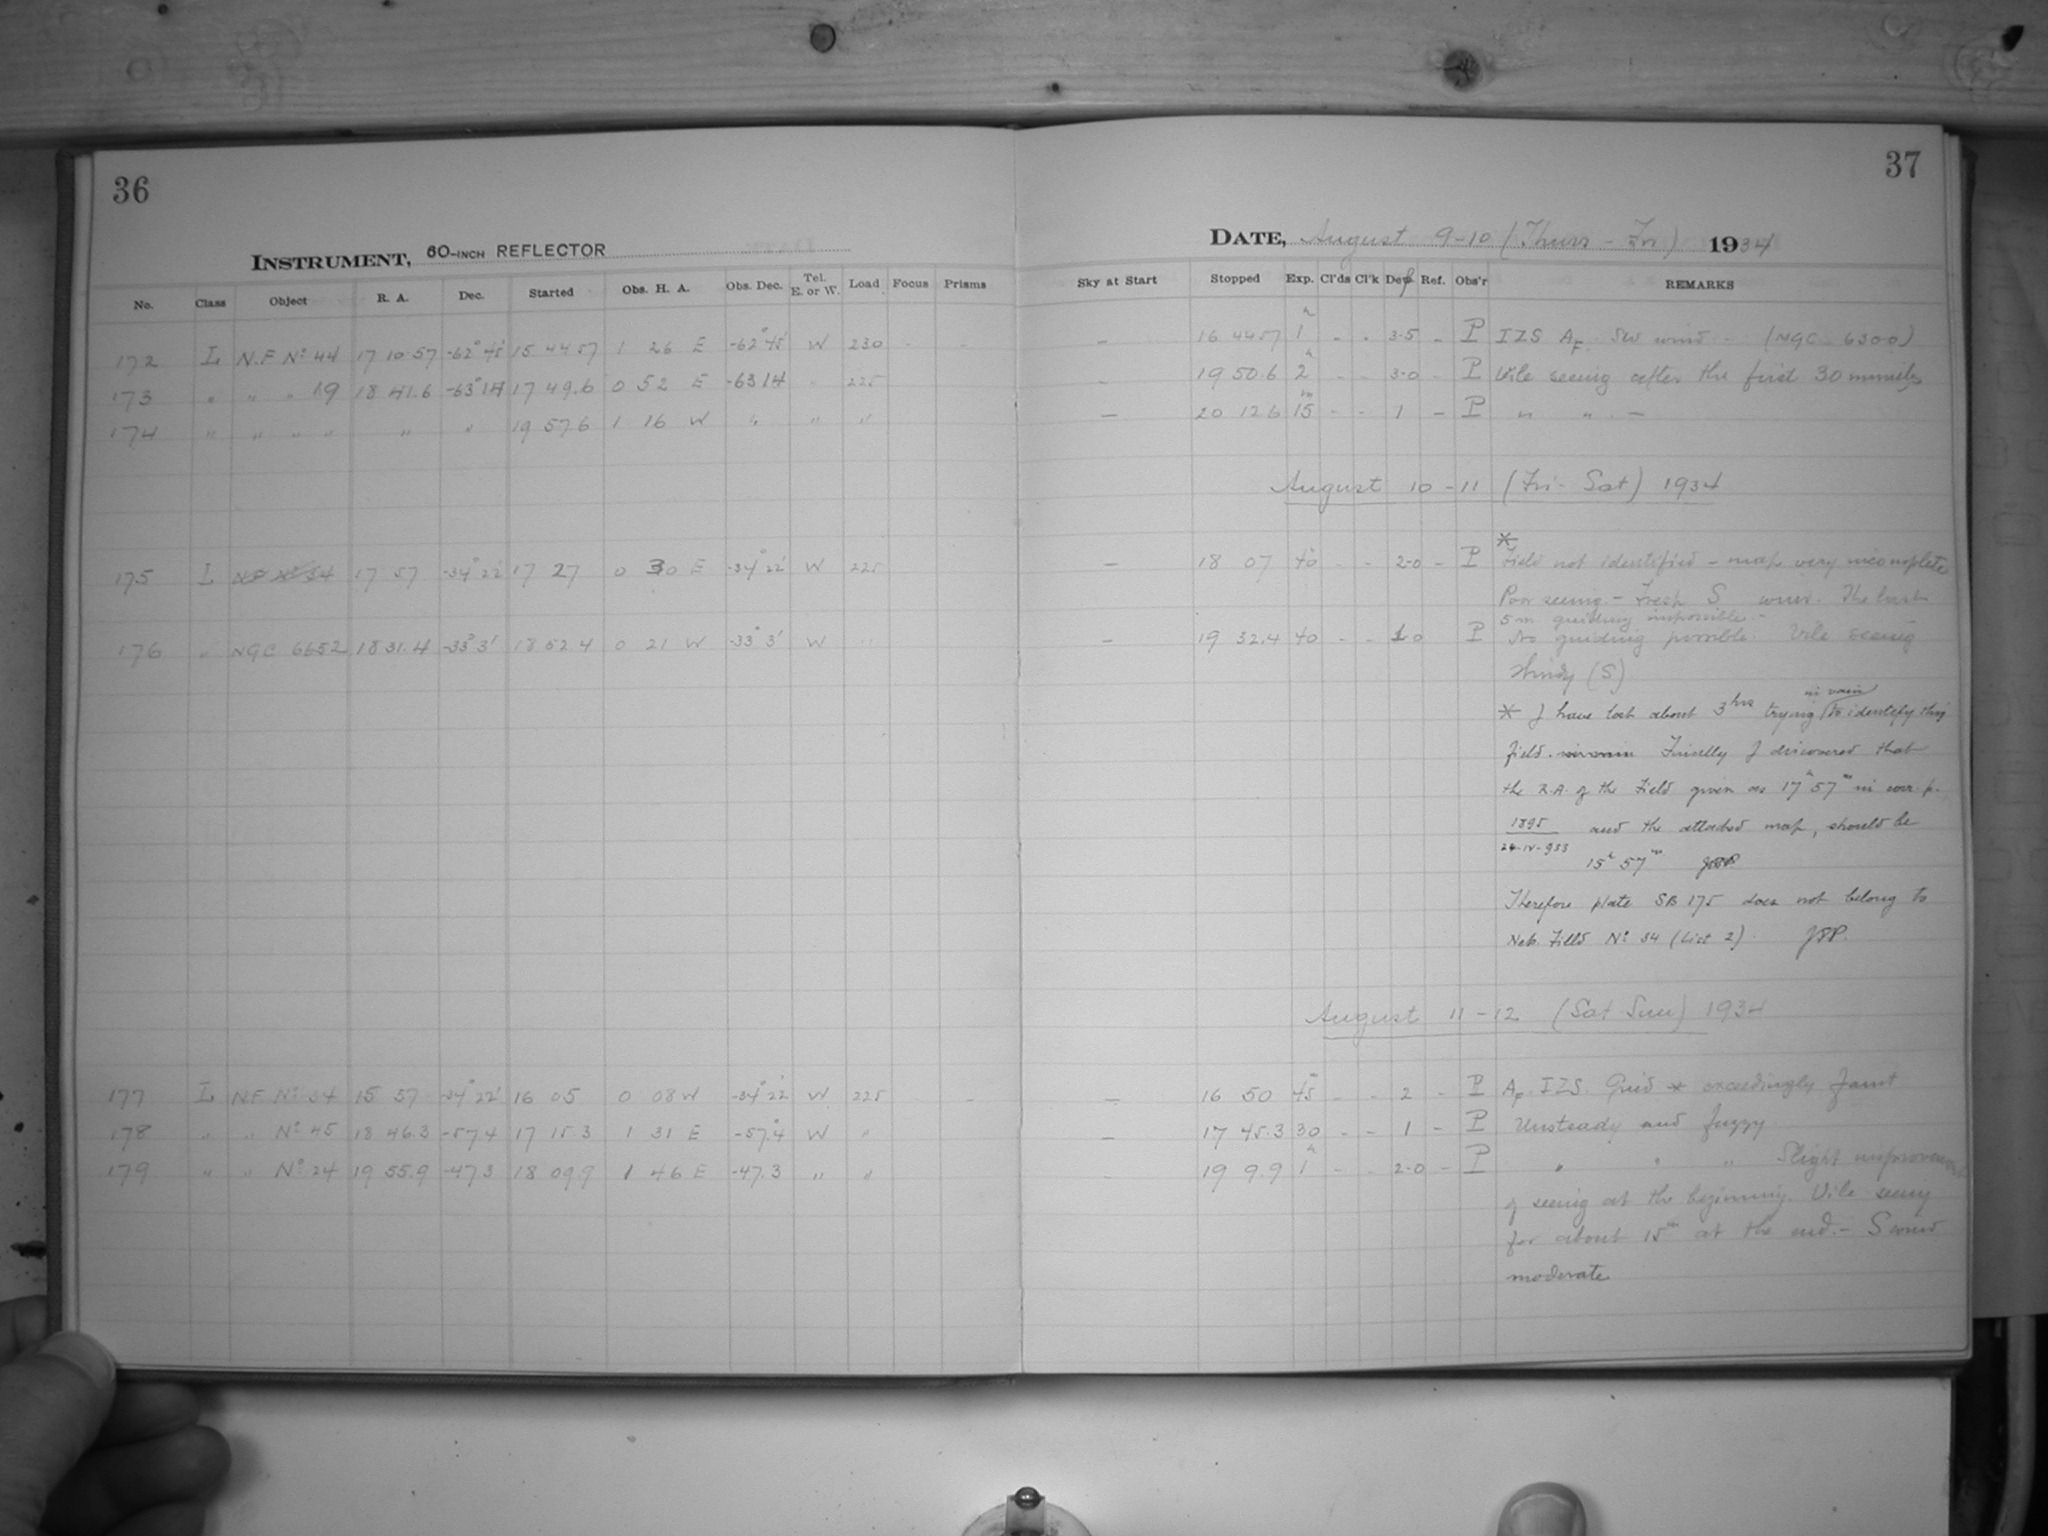 36
INSTRUMENT, 60-INCH REFLECTOR
No. Class Object R. A. Dec. Started Obs. H. A. Obs. Dec. Tel. E. or W. Load Focus Prisms
172 L N.F Nº 44 17 10 57 -62° 45' 15 44 57 1 26 E -62° 45' W 230 - -
173 " " " 19 18 41.6 -63° 14 17 49.6 0 52 E -63 14 " 225
174 " " " " " " 19 57 6 1 16 W " " "
175 L NF Nº 34 17 57 -34° 22' 17 27 0 30 E -34° 22' W 225
176 " NGC 6652 18 31.4 -33° 3' 18 52 4 0 21 W -33° 3' W "
177 L NF Nº 34 15 57 -34° 22' 16 05 0 08 W -34° 22' W 225 -
178 " " Nº 45 18 46.3 -57 4 17 15.3 1 31 E -57.4 W "
179 " " Nº 24 19 55.9 -47 3 18 09.9 1 46 E -47.3 " "
37
DATE, August 9-10 (Thurs - Fri) 1934
Sky at Start Stopped Exp. Cl'ds Cl'k Def Ref. Obs'r REMARKS
- 16 44 57 1h - - 3-5 - P IZS AF. SW wind - (NGC 6300)
- 19 50.6 2h - - 3-0 - P Vile seeing after the first 30 minutes
- 20 12 6 15m - - 1 - P " " . -
August 10-11 (Fri - Sat) 1934
*
- 18 07 40 - - 2-0 - P Field not identified - map very incomplete
Poor seeing - Fresh S wind. The last
5 m. guiding impossible. -
- 19 32.4 40 - - 1 0 P No guiding possible. Vile seeing
Windy (S)
in vain
* I have lost about 3 hrs trying to identify this
field. in vain Finally I discovered that
the R.A. of the Field given as 17h 57m in corr. p.
1895 and the attached map, should be
24-IV-933
15h 57m JSP
Therefore plate SB 175 does not belong to
Neb. Field Nº 34 (List 2) JSP.
August 11-12 (Sat Sun) 1934
- 16 50 45m - - 2 - P AF. IZS. Guid * exceedingly faint
- 17 45.3 30 - - 1 - P Unsteady and fuzzy
- 19 9.9 1h - - 2-0 - P " " " Slight improvement
of seeing at the beginning. Vile seeing
for about 15m at the end. - S wind
moderate